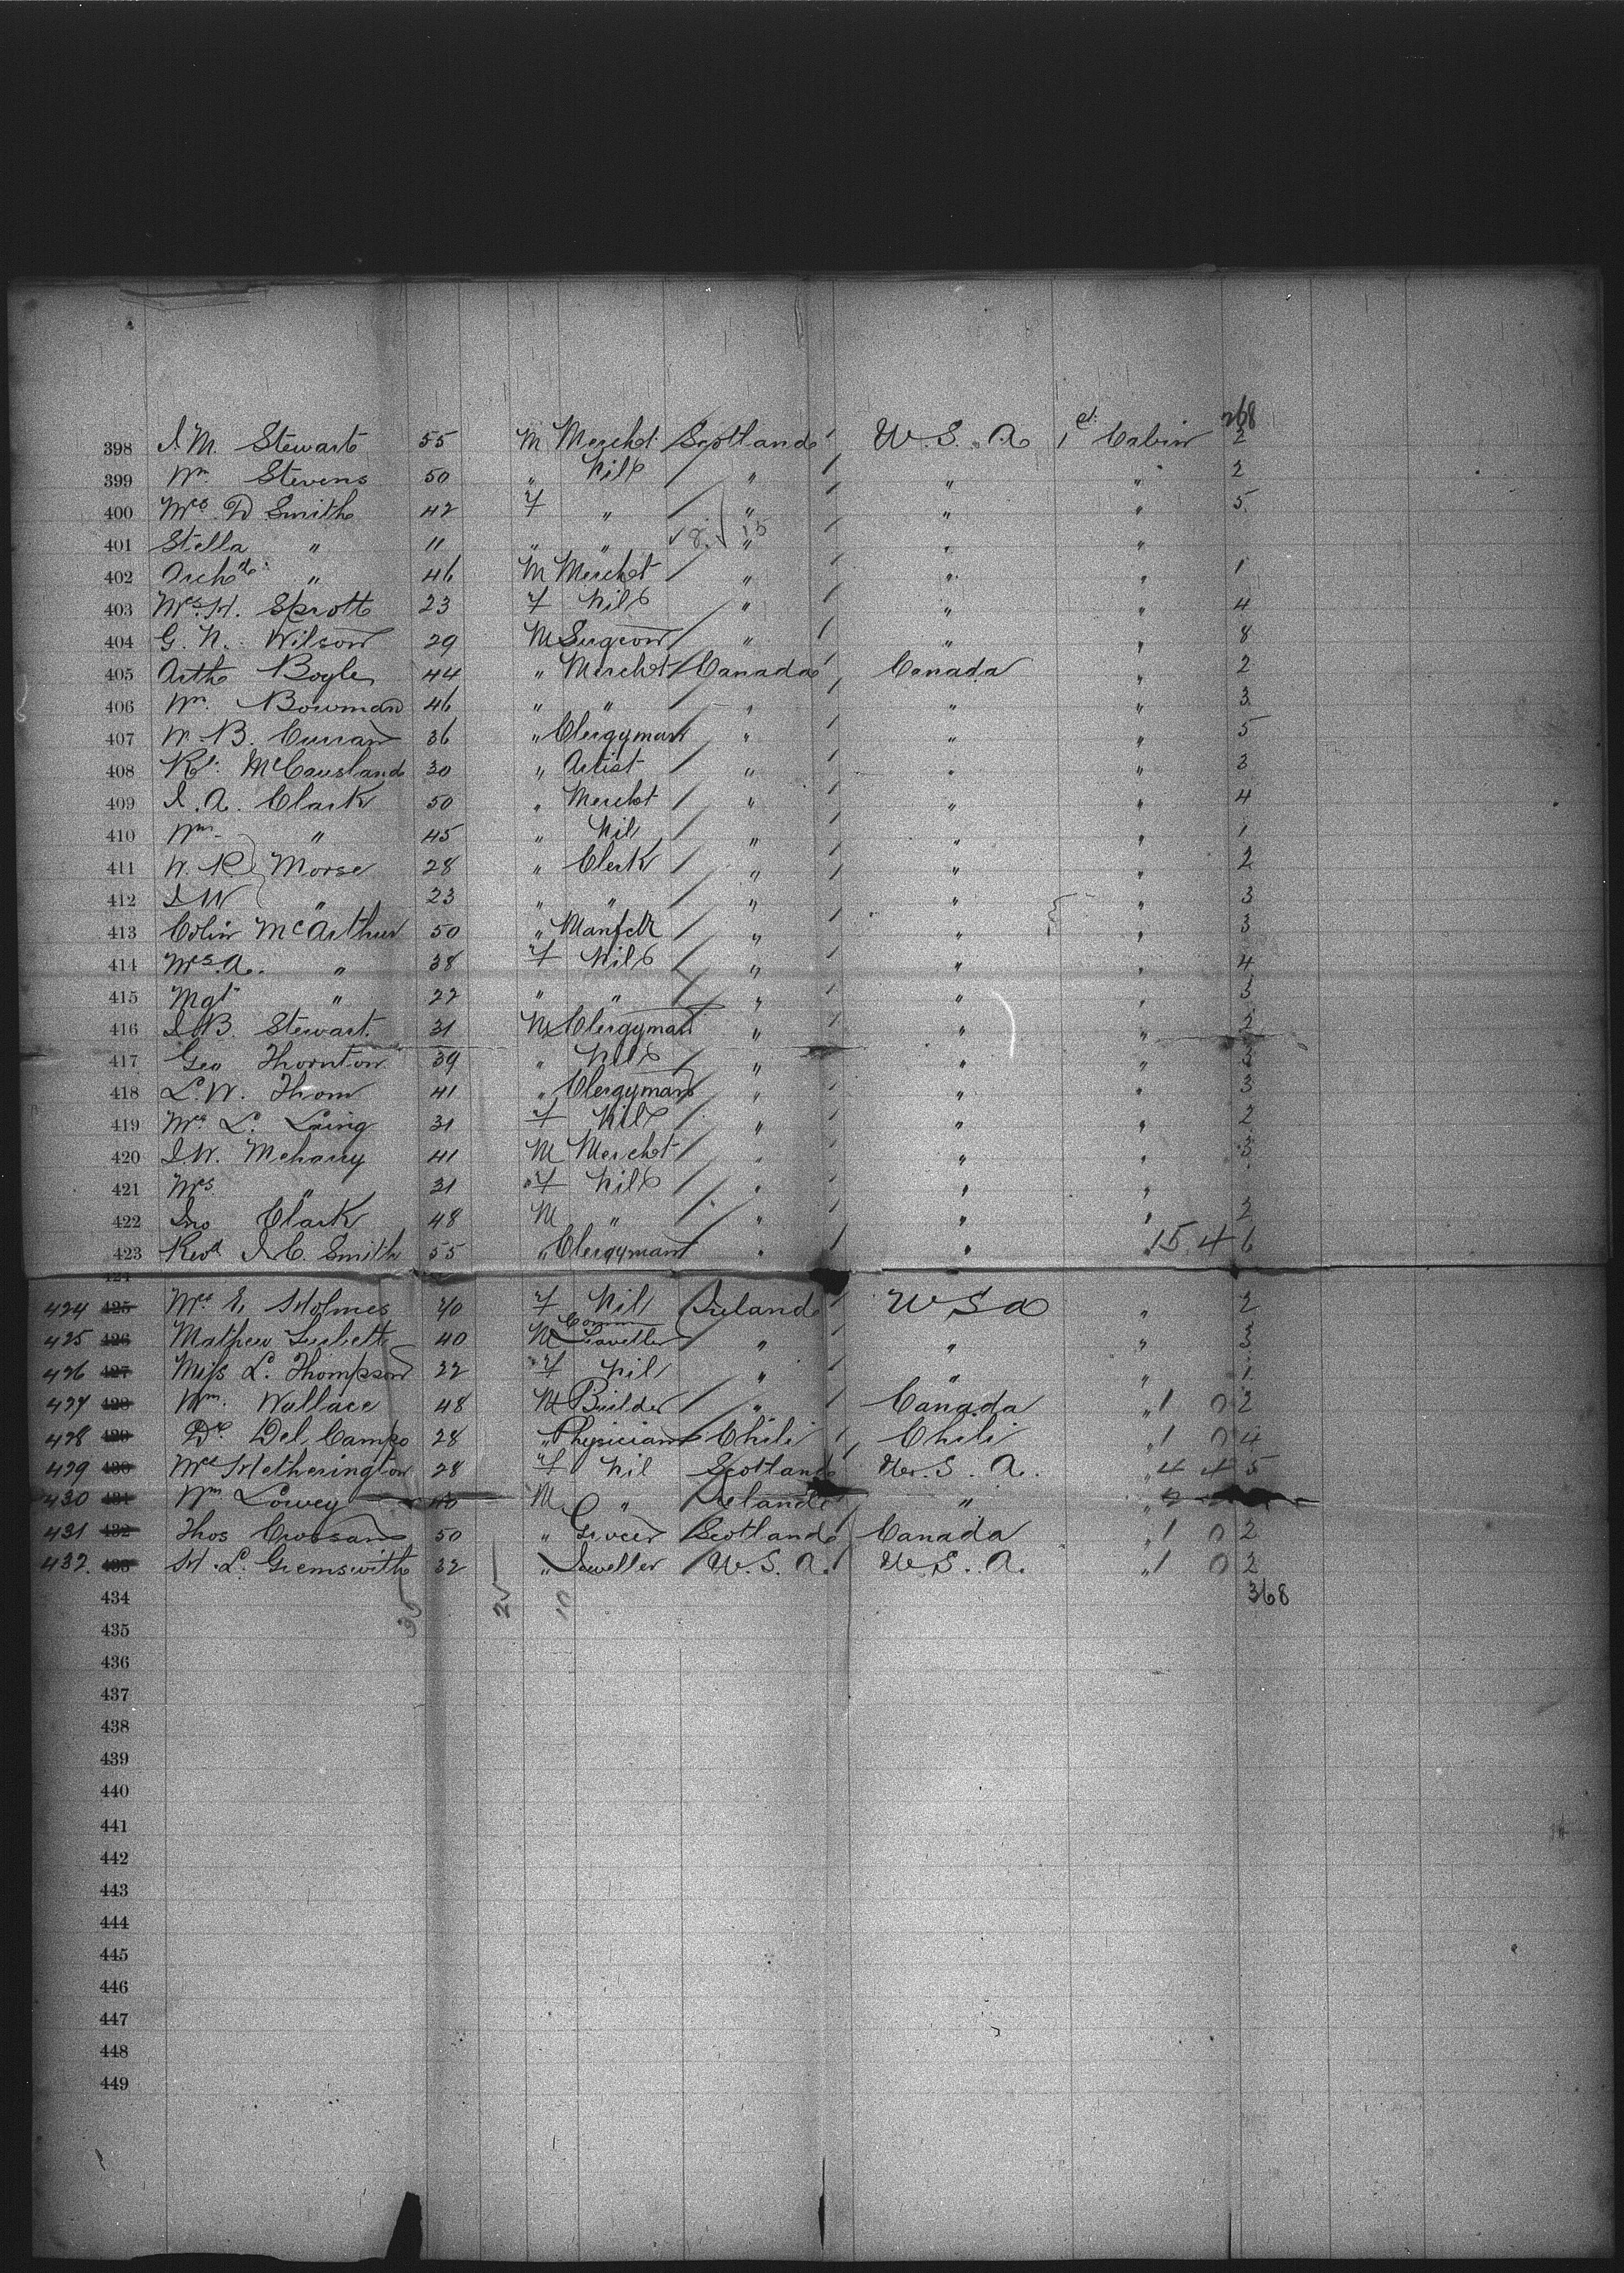 268
398 J. M. Stewart 55 M Mercht Scotland U. S. A 1st Cabin 2
399 Wm Stevens 50 " Nil " " " 2
400 Mrs D Smith 42 F " " " " 5
401 Stella " 11 " " " " "
402 Archd " 46 M Mercht " " " 1
403 Mrs. H. Sprott 23 F Nil " " " 4
404 G. N. Wilson 29 M Surgeon " " " 8
405 Arth Boyle 44 " Mercht Canada Canada " 2
406 Wm. Bowman 46 " " " " " 3
407 W. B. Curran 36 " Clergyman " " " 5
408 Rt. McCausland 30 " Artist " " " 3
409 J. A. Clark 50 " Mercht " " " 4
410 Wm " 45 " Nil " " " 1
411 W. R Morse 28 " Clerk " " " 2
412 J W " 23 " " " " " 3
413 Colin McArthur 50 " Manfctr " " " 3
414 Mrs. A. " 38 F Nil " " " 4
415 Mgt " 22 " " " " " 3
416 J B. Stewart 31 M Clergyman " " " 2
417 Geo Thornton 39 " Nil " " "
418 L. W. Thom 41 " Clergyman " " " 3
419 Mrs L. Laing 31 F Nil " " " 2
420 J. W. Meharry 41 M Mercht " " " 3
421 Mrs " 31 F Nil " " "
422 Jno Clark 48 M " " " " 2
423 Revd J. C. Smith 55 " Clergyman " " " 15 4 6
424
424 425 Mrs E Holmes 40 F Nil Ireland U S A " 2
425 426 Mathew 40 M Comm Traveller " " " 3
426 427 Miss L. Thompson 22 F Nil " " " 1
427 428 Wm. Wallace 48 M Builder " Canada " 1 0 2
428 429 Dr Del Campo 28 " Physician Chili Chili " 1 0 4
429 430 Mrs Hetherington 28 F Nil Scotland U. S. A. " 4 4 5
430 431 Wm Lowey 40 M " Ireland " "
431 432 Thos Crossan 50 " Grocer Scotland Canada " 1 0 2
432. 433 H. L. 32 " Jeweller U. S. A. U. S. A. " 1 0 2
434 368
435
436
437
438
439
440
441
442
443
444
445
446
447
448
449